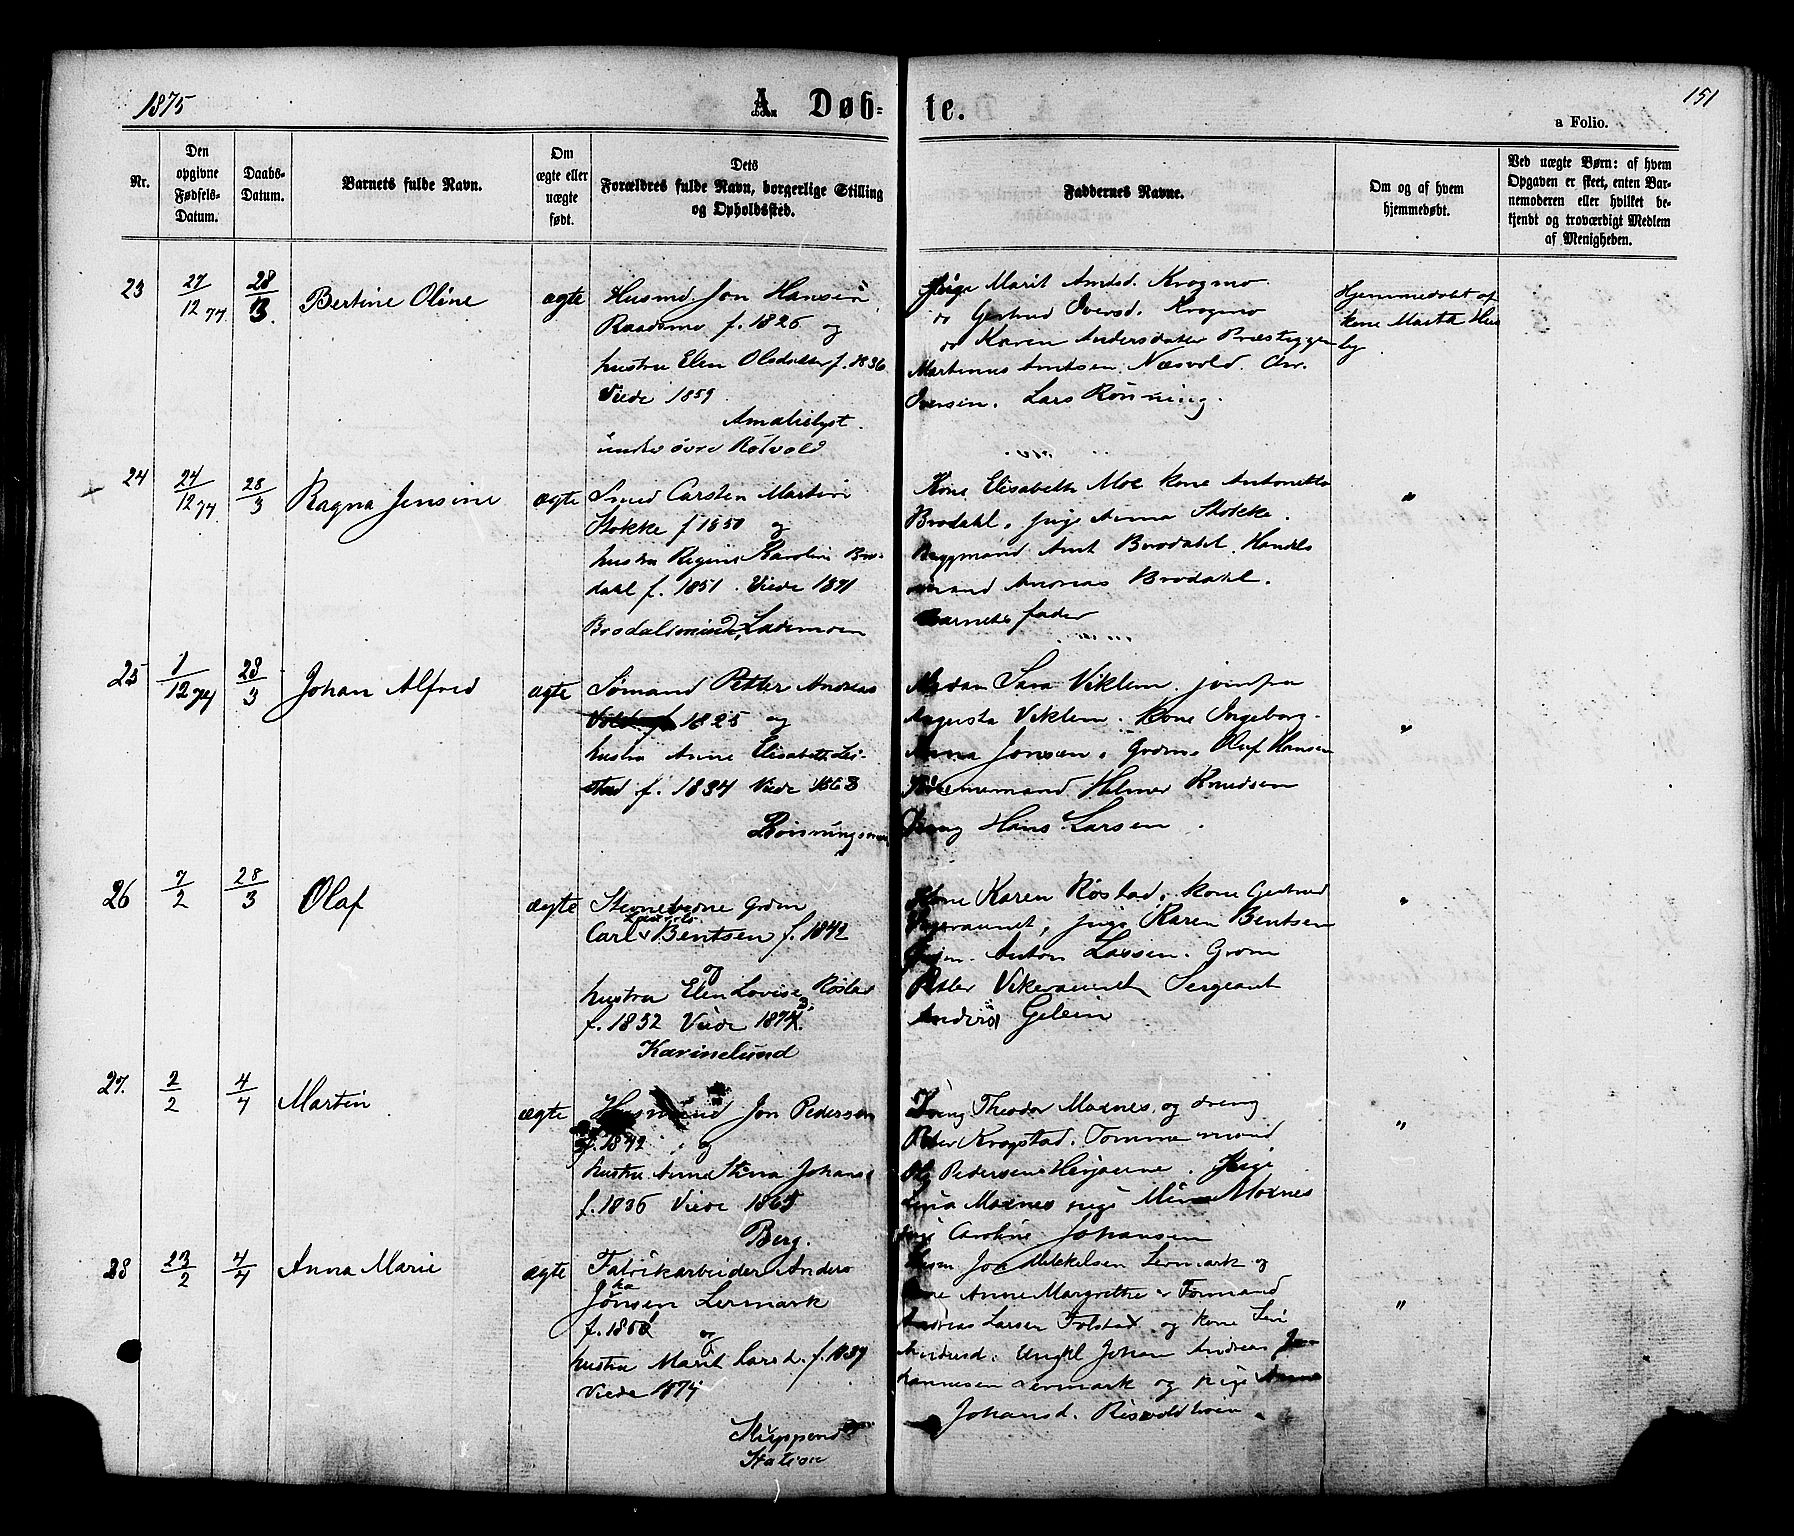 1875
A. Døb-
te.
151
a Folio.
Nr.
Den opgivne Fødsels-Datum.
Daabs-Datum.
Barnets fulde Navn.
Om ægte eller uægte født.
Dets Forældres fulde Navn, borgerlige Stilling og Opholdssted.
Faddernes Navne.
Om og af hvem hjemmedøbt.
Ved uægte Børn: af hvem Opgaven er skeet, enten Barnemoderen eller hvilket bekjendt og troværdigt Medlem af Menigheden.
23
27/12 74.
28/3
Bertine Oline
ægte
Husmd. Jon Hansen
f. 1826 og
hustru Elen Olsdatter f. 1836
Viede 1859
Amalielyst
under øvre Rotvold
Pige Marit Arntsd. Krogmo
Gertrud Iversd. Krogmo
Karen Andersdatter
Martinus Arntsen Næsvold. Chr.
Iversen. Lars Rønning.
Hjemmedøbt af
kone Martha Hus
by
24
24/12 74
28/3
Ragna Jensine
ægte
Smed Carsten Martin
Stokke f 1850 og
hustru Regine Karoline Bro-
dahl f. 1851. Viede 1871
Brodalsminde, Lademoen
Kone Elisabeth Moe kone Antonette
Brodahl, pige Anna Stokke.
Byggmand Arnt Brodahl. Handels
mand Andreas Brodahl.
Barnets fader
"
25
1/12 74
28/3
Johan Alfred
ægte
Sømand Petter Andreas
f 1825 og
hustru Anne Elisabeth Lei-
stad f. 1834 Viede 1863
Rønningsmo
Madam Sara Viklem jomfru
Augusta Viklem. kone Ingeborg
Anna Jonsen. Grdm. Olaf Hansen
Tømmermand Helmer Knudsen
Dreng Hans Larsen.
"
26
7/2
28/3
Olaf
ægte
Stevnevidne Grdm
Carl Laurits Bentsen f. 1842
og
hustru Elen Lovise Røstad
f. 1852 Viede 1873.
Karinelund
Kone Karen Røstad, kone Gertrud
pige Karen Bentsen
Anton Lassen. Grdm
Petter Vikeraunet Sergeant
Anders Gilein
"
27.
2/2
4/4
Martin
ægte
Husmand Jon Pedersen
f. 1842 og
hustru Anne Stina Johans
f. 1836 Viede 1865
Berg.
Dreng Theodor Moxnes, og dreng
Peter Krogstad. Tømmermand
Ole Pedersen. Pige
Lina Moxnes pige Mina Moxnes
pige Caroline Johansen
"
28
23/2
4/4
Anna Marie
ægte
Fabrikarbeider Anders
Jonsen Lermark
f. 1850
og
hustru Marit Larsd. f. 1839
Viede 1874
Skippend
Station
Husm Jon Mikkelsen Lermark og
kone Anne Margrethe Formand
Andreas Larsen Folstad og kone
Andersd. Ungkl Johan Andreas Jo-
hannesen Lermark og pige Anna
Johansd. Risvoldtrøen
"